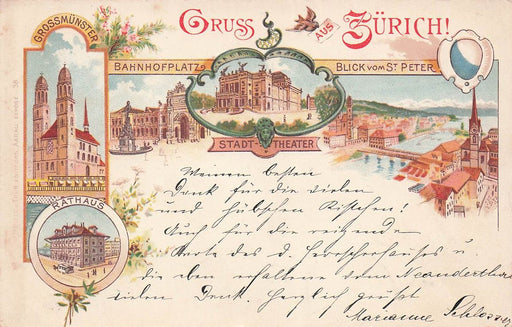 GRUSS AUS ZÜRICH!
GROSSMÜNSTER
BAHNHOFPLATZ
BLICK VOM ST PETER
STADT-THEATER
RATHAUS
Meinen besten
Dank für die vielen
und hübschen Kistchen!
Auch für die reizende
Karte des d. Herrscherhauses u.
die eben erhaltene vom Neanderthal
vielen Dank. Herzlich grüsst
Marianne Schlosser